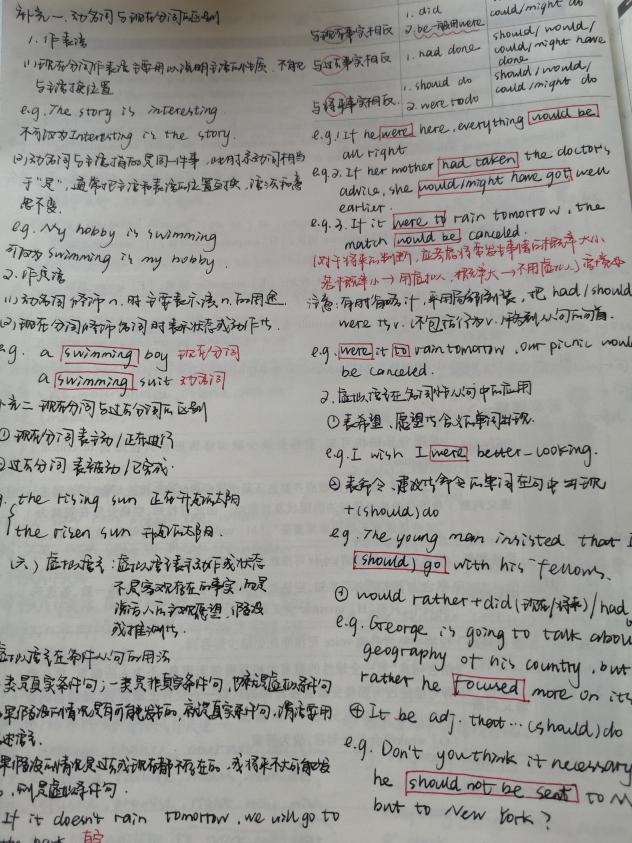 补充一、动名词与现在分词的区别
1. 作表语
(1)现在分词作表语主要用以说明主语的性质，不能
与主语换位置
e.g. The story is interesting.
不可改为Interesting is the story.
(2)动名词与主语指的是同一件事，此时系动词相当
于"是"，通常把主语和表语的位置互换，语法和意
思不变.
e.g. My hobby is swimming
可改为 swimming is my hobby.
2. 作定语
(1)动名词修饰n.时主要表示该n.的用途.
(2)现在分词修饰名词时表示状态或动作等.
e.g. a swimming boy 现在分词
a swimming suit 动名词
补充二 现在分词与过去分词的区别
①现在分词表主动/正在进行
②过去分词表被动/已完成.
the rising sun 正在升起的太阳
the risen sun 升起的太阳.
(六)虚拟语气：虚拟语气表示动作或状态
不是客观存在的事实，而是
说话人的主观愿望、假设
或推测等.
虚拟语气在条件从句的用法
类是真实条件句；一类是非真实条件句，即虚拟条件句
果假设的情况是有可能发生的，就是真实条件句，谓语要用
述语气.
果假设的情况是过去或现在都不存在的，或将来不大可能发
，则是虚拟条件句.
If it doesn't rain tomorrow, we will go to
the park.
1. did
could/might do
与现在事实相反
2. be一般用were
与过去事实相反
1. had done
should/would/
could/might have
done
与将来事实相反.
1. should do
2. were to do
should/would/
could/might do
e.g.1 If he were here, everything would be
all right
e.g.2. If her mother had taken the doctor's
advice, she would/might have got well
earlier.
e.g.3. If it were to rain tomorrow, the
match would be canceled.
(对于将来的判断，应考虑将要发生事情的概率大小
若概率小→用虚拟，概率大→不用虚拟)
注意：有时省略if，采用部分倒装，把had/should
were等v.(不包括行为v.)移到从句的句首.
e.g. were it to rain tomorrow, our picnic would
be canceled.
2. 虚拟语气在名词性从句中的应用
①表希望、愿望等含义的单词出现.
e.g. I wish I were better-looking.
②表命令、建议等命令的单词在句中出现
+(should) do
e.g. The young man insisted that I
(should) go with his fellows.
would rather+did(现在/将来)/had
e.g. George is going to talk abou
geography of his country, but
rather he focused more on its
④It be adj. that…(should) do
e.g. Don't you think it necessary
he should not be sent to M
but to New York?